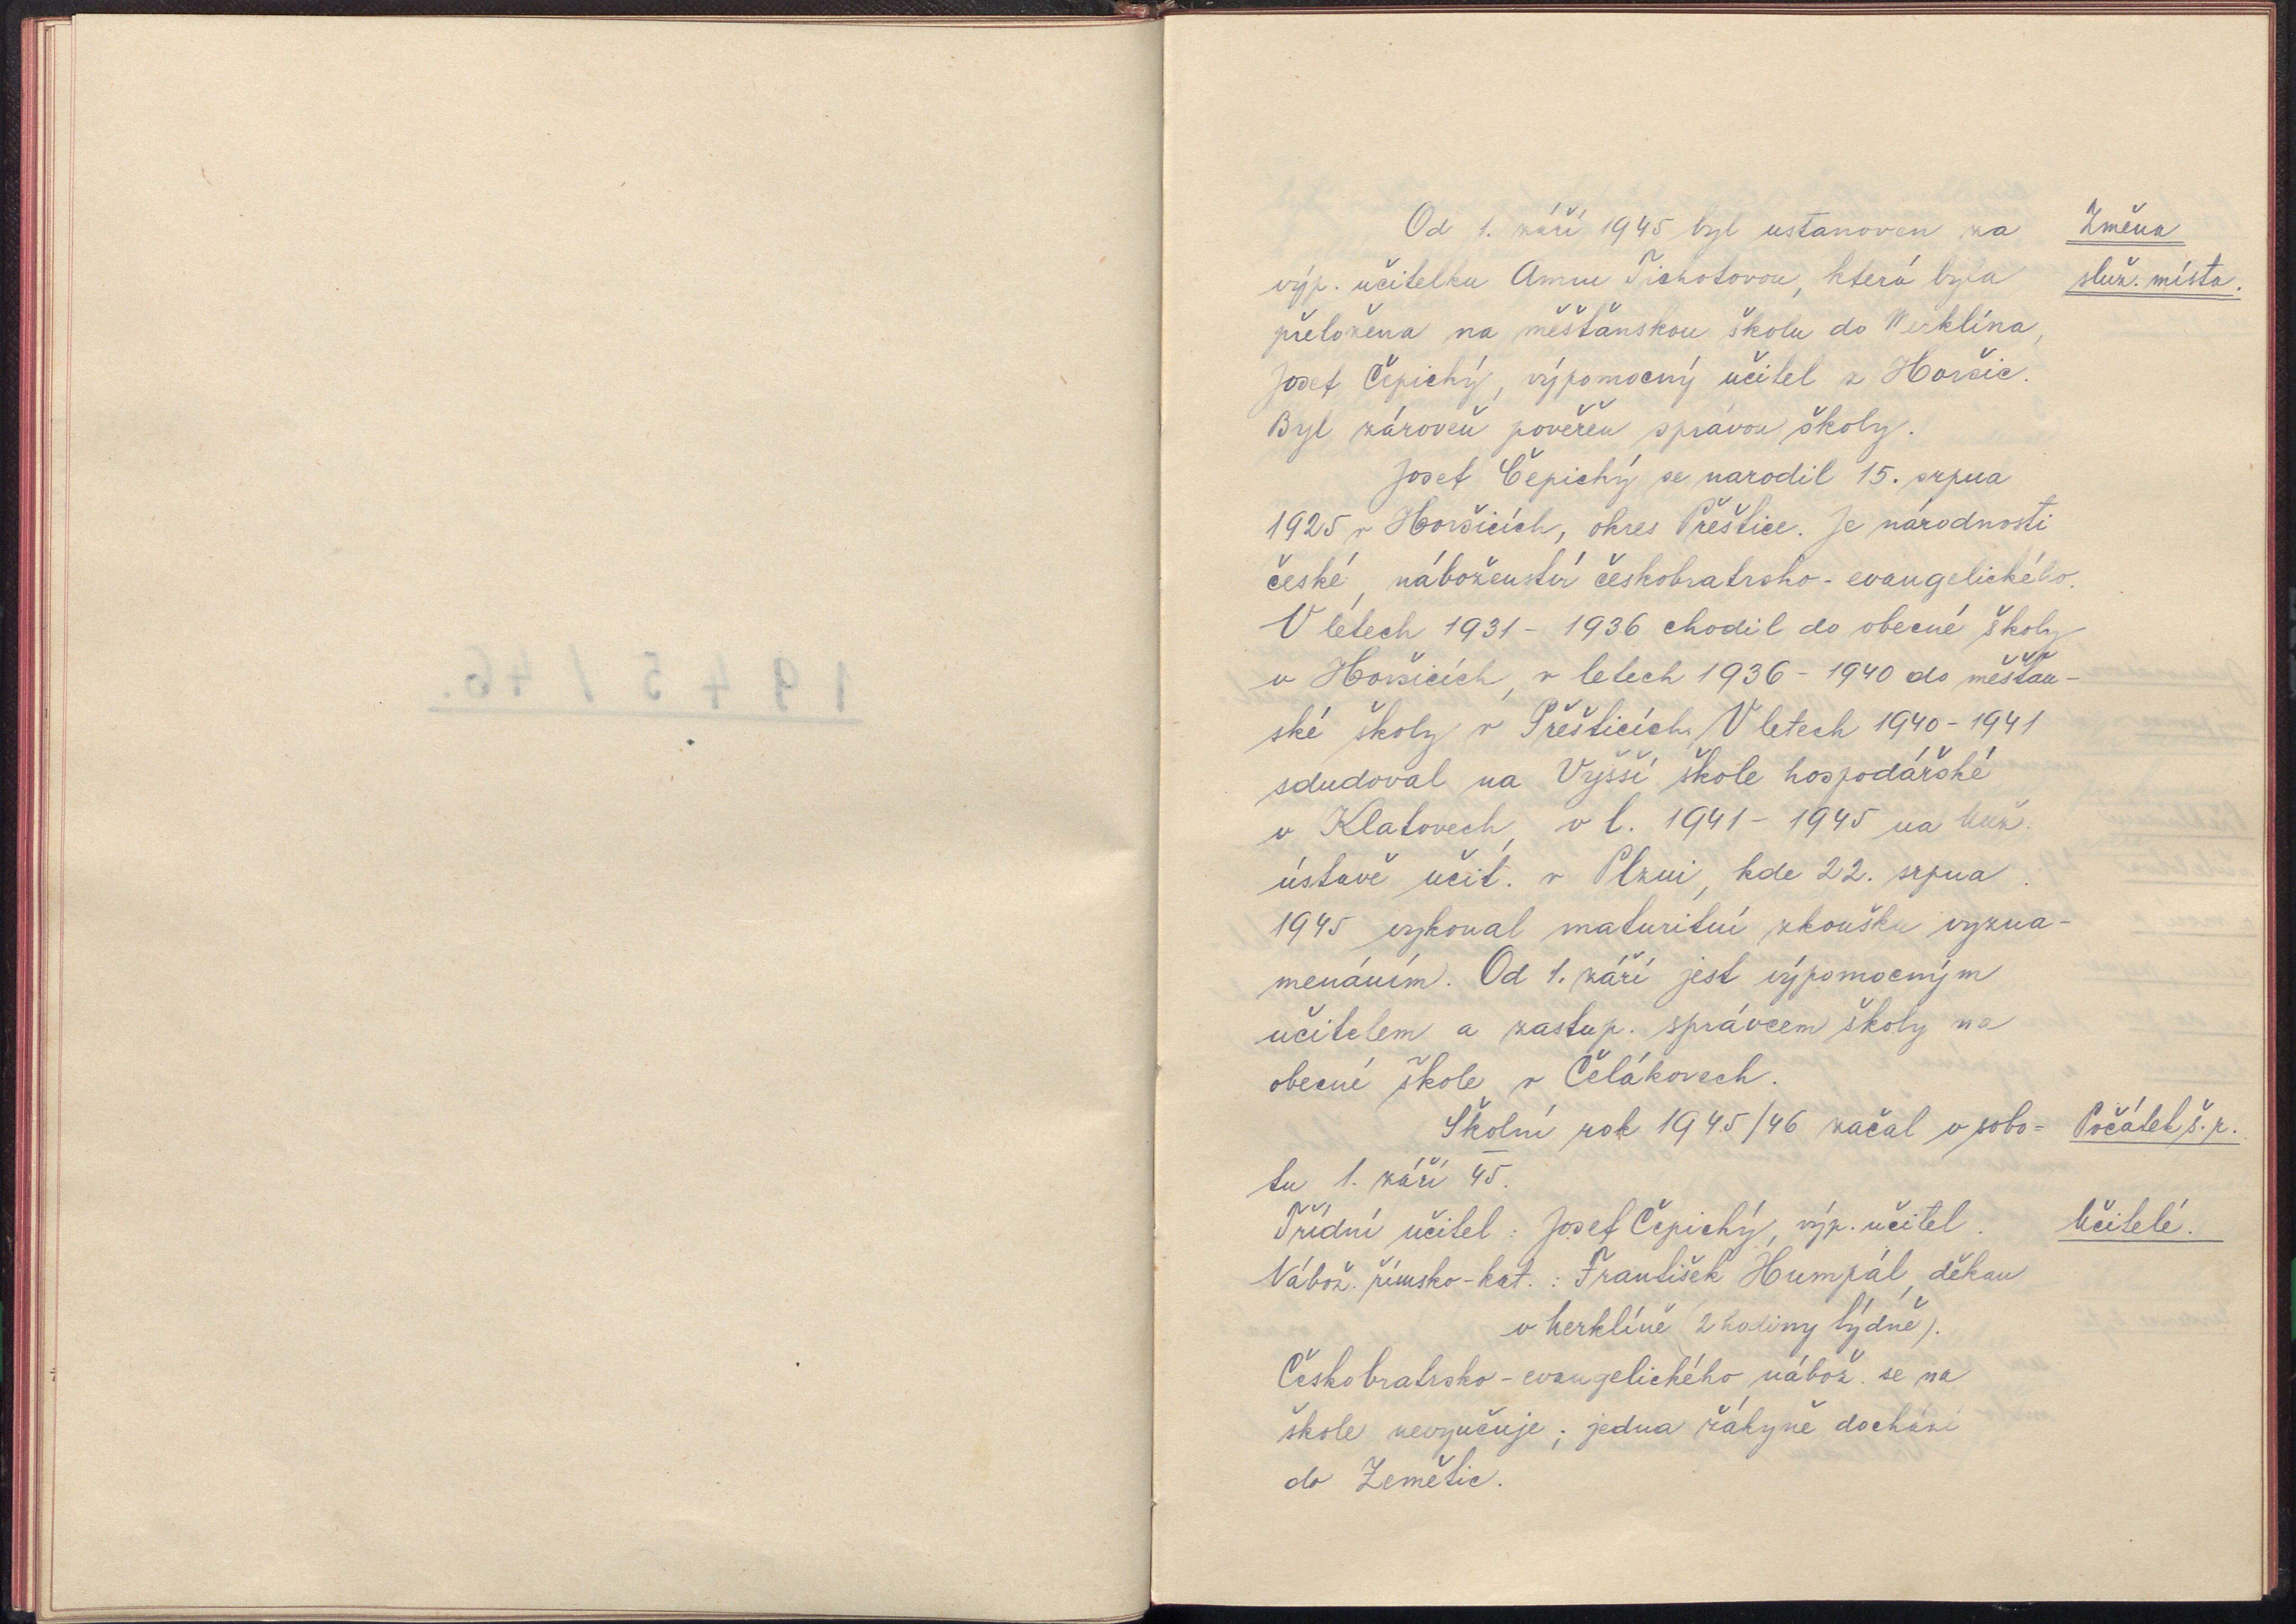 1945/46.
Od 1. září 1945 byl ustanoven za
Změna
výp. učitelku Annu Tichotovou, která byla
služ. místa.
přeložena na měšťanskou školu do Merklína,
Josef Čepický, výpomocný učitel z Horšic.
Byl zároveň pověřen správou školy.
Josef Čepický se narodil 15. srpna
1925 v Horšicích, okres Přeštice. Je národnosti
české, náboženství českobratrsko-evangelického.
V létech 1931 - 1936 chodil do obecné školy
v Horšicích, v letech 1936 - 1940 do měšťan-
ské školy v Přešticích. V letech 1940 - 1941
sdudoval na Vyšší škole hospodářské
v Klatovech, v l. 1941 - 1945 na Muž.
ústavě učit. v Plzni, kde 22. srpna
1945 vykonal maturitní zkoušku vyzna-
menáním. Od 1. září jest výpomocným
učitelem a zastup. správcem školy na
obecné škole v Čelákovech.
Školní rok 1945/46 začal v sobo=
Počátek š. r.
tu 1. září 45.
Třídní učitel: Josef Čepický, výp. učitel.
Učitelé.
Nábož. římsko-kat.: František Humpál, děkan
v Merklíně (2 hodiny týdně).
Českobratrsko-evangelického nábož. se na
škole nevyučuje; jedna žákyně dochází
do Zemětic.